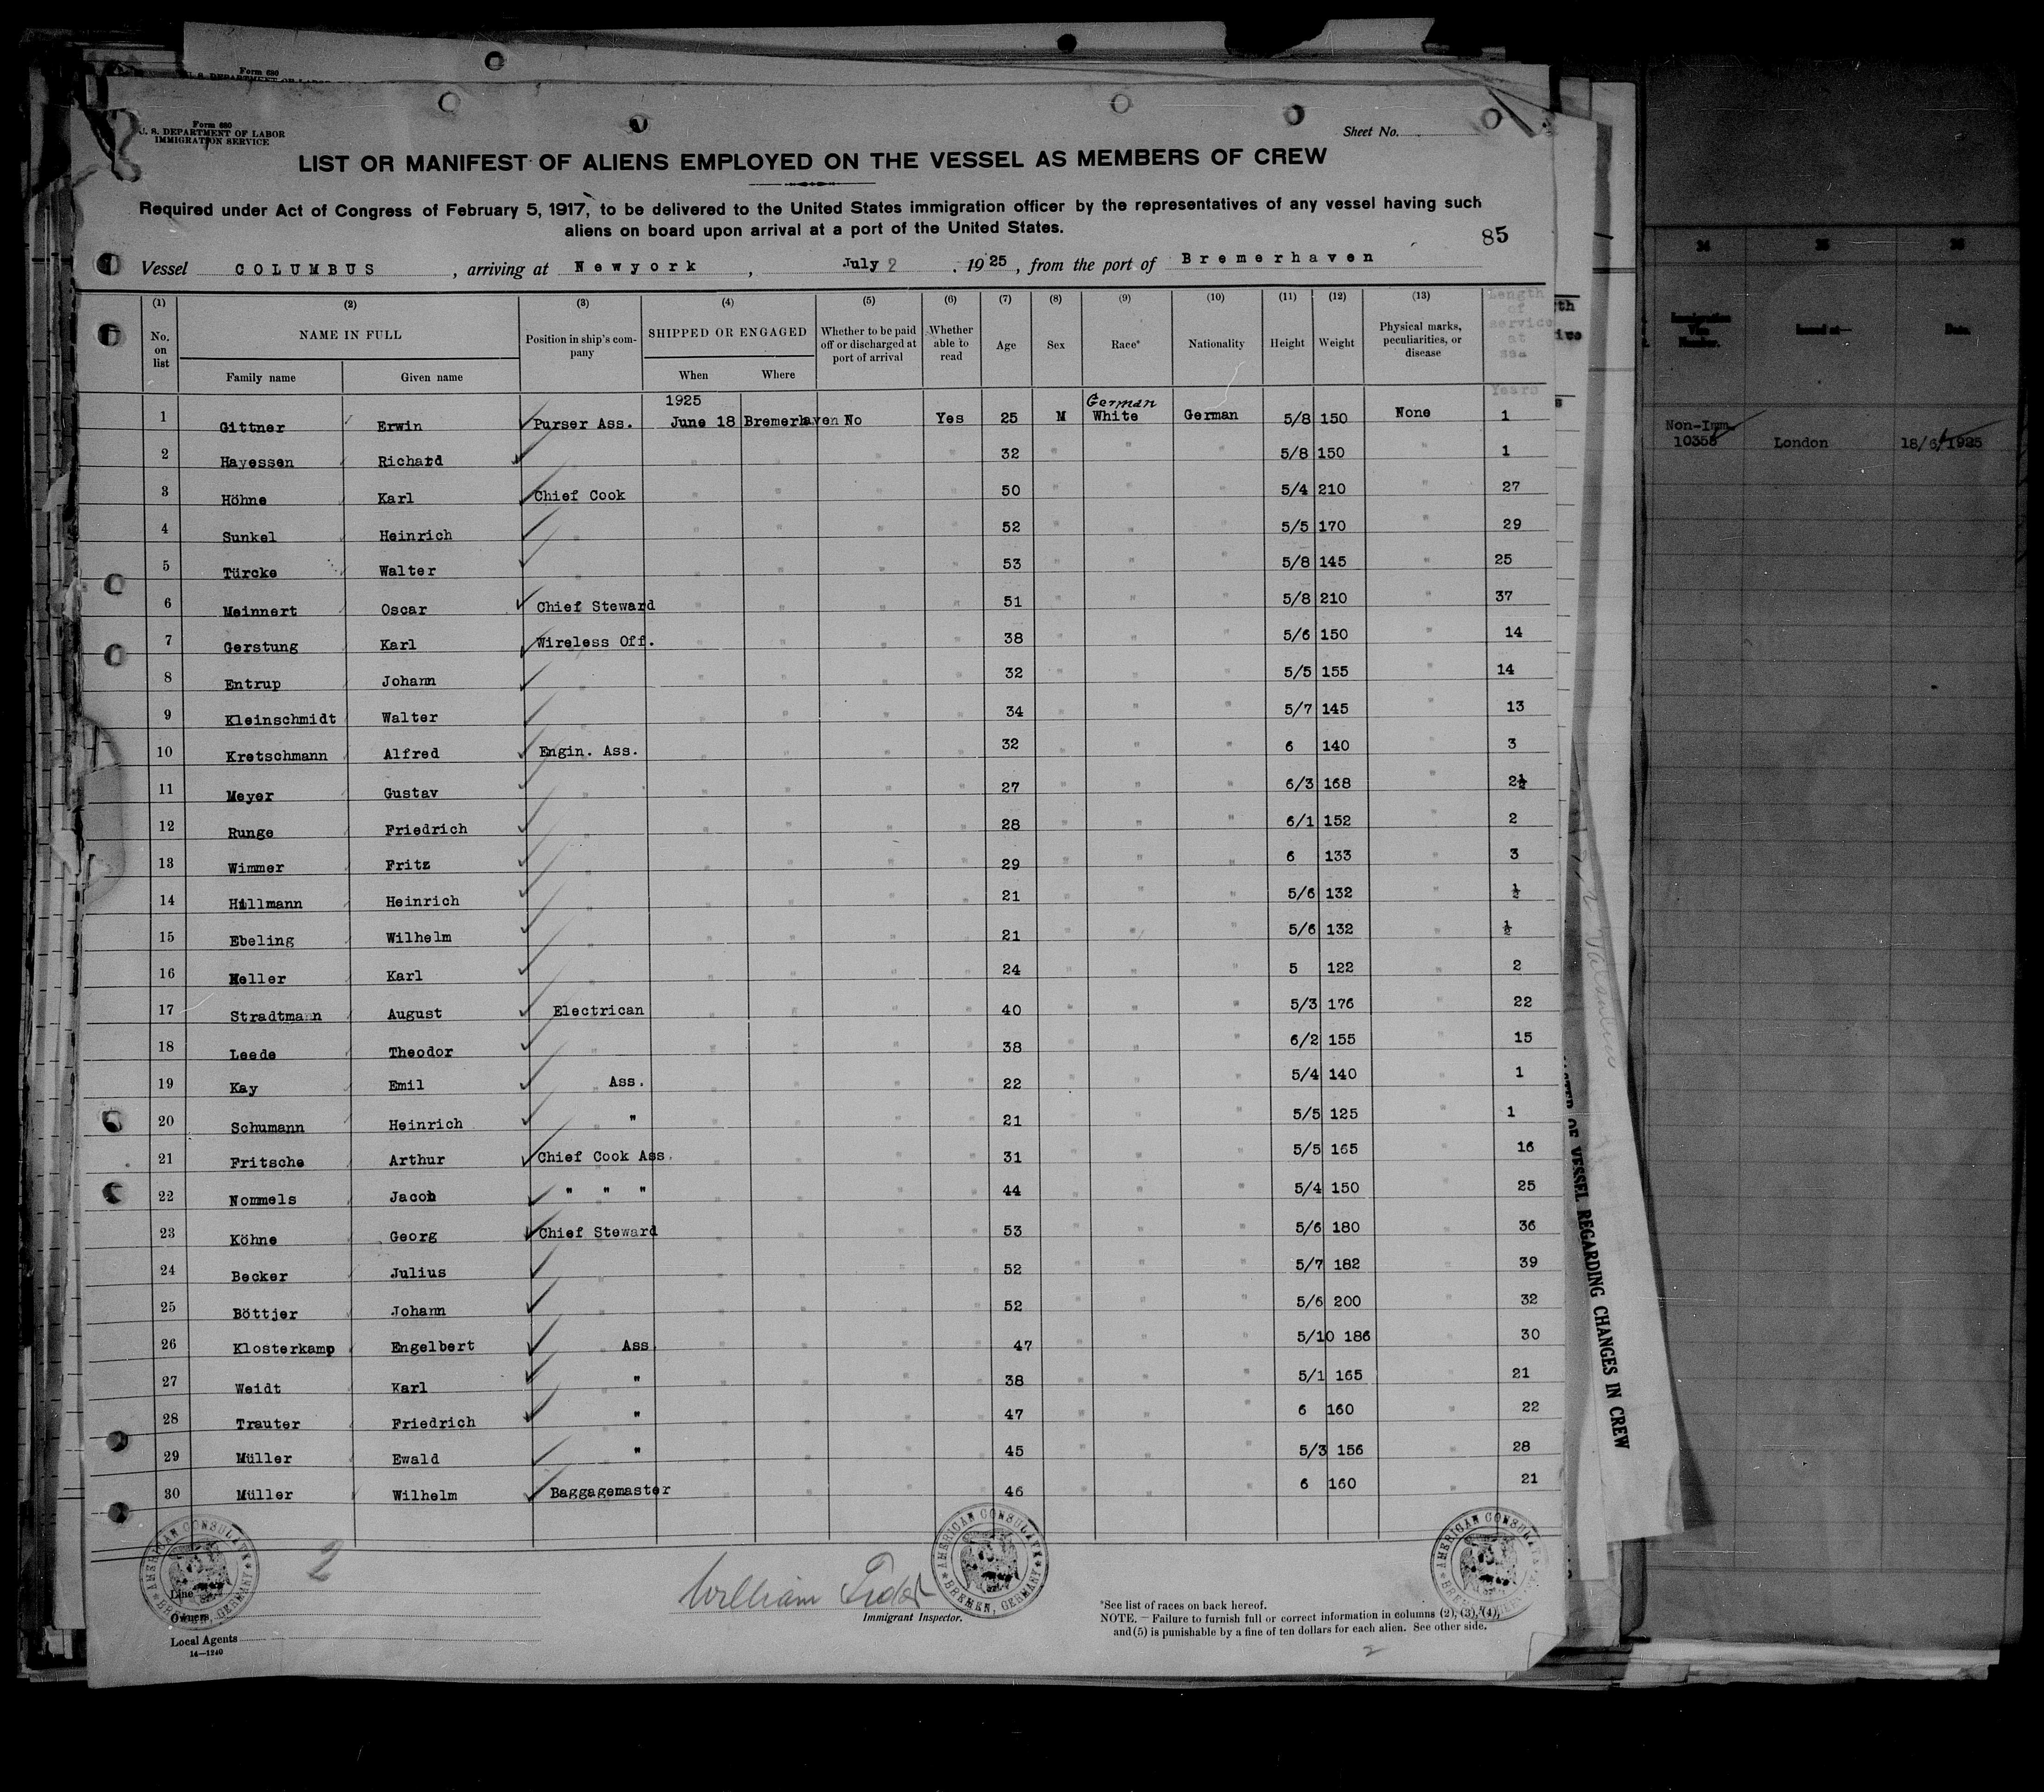 Form 680
U. S. DEPARTMENT OF LABOR
Form 680
U. S. DEPARTMENT OF LABOR
IMMIGRATION SERVICE
Sheet No.
LIST OR MANIFEST OF ALIENS EMPLOYED ON THE VESSEL AS MEMBERS OF CREW
Required under Act of Congress of February 5, 1917, to be delivered to the United States immigration officer by the representatives of any vessel having such
aliens on board upon arrival at a port of the United States.
85
Vessel COLUMBUS, arriving at Newyork, July 2, 1925, from the port of Bremerhaven
(1) (2) (3) (4) (5) (6) (7) (8) (9) (10) (11) (12) (13)
No. on list NAME IN FULL Family name Given name Position in ship's company SHIPPED OR ENGAGED When Where Whether to be paid off or discharged at port of arrival Whether able to read Age Sex Race* Nationality Height Weight Physical marks, peculiarities, or disease Length of service at sea
Years
1925 German
1 Gittner Erwin Purser Ass. June 18 Bremerhaven No Yes 25 M White German 5/8 150 None 1
2 Hayessen Richard " " " " " 32 " " " 5/8 150 " 1
3 Höhne Karl Chief Cook " " " " 50 " " " 5/4 210 " 27
4 Sunkel Heinrich " " " " " 52 " " " 5/5 170 " 29
5 Türcke Walter " " " " " 53 " " " 5/8 145 " 25
6 Meinnert Oscar Chief Steward " " " " 51 " " " 5/8 210 " 37
7 Gerstung Karl Wireless Off. " " " " 38 " " " 5/6 150 " 14
8 Entrup Johann " " " " " 32 " " " 5/5 155 " 14
9 Kleinschmidt Walter " " " " " 34 " " " 5/7 145 " 13
10 Kretschmann Alfred Engin. Ass. " " " " 32 " " " 6 140 " 3
11 Meyer Gustav " " " " " 27 " " " 6/3 168 " 2½
12 Runge Friedrich " " " " " 28 " " " 6/1 152 " 2
13 Wimmer Fritz " " " " " 29 " " " 6 133 " 3
14 Hillmann Heinrich " " " " " 21 " " " 5/6 132 " ½
15 Ebeling Wilhelm " " " " " 21 " " " 5/6 132 " ½
16 Heller Karl " " " " " 24 " " " 5 122 " 2
17 Stradtmann August Electrican " " " " 40 " " " 5/3 176 " 22
18 Leede Theodor " " " " " 38 " " " 6/2 155 " 15
19 Kay Emil " Ass. " " " " 22 " " " 5/4 140 " 1
20 Schumann Heinrich " " " " " " 21 " " " 5/5 125 " 1
21 Fritsche Arthur Chief Cook Ass. " " " " 31 " " " 5/5 165 " 16
22 Nommels Jacob " " " " " " " 44 " " " 5/4 150 " 25
23 Köhne Georg Chief Steward " " " " 53 " " " 5/6 180 " 36
24 Becker Julius " " " " " 52 " " " 5/7 182 " 39
25 Böttjer Johann " " " " " 52 " " " 5/6 200 " 32
26 Klosterkamp Engelbert " Ass " " " " 47 " " " 5/10 186 " 30
27 Weidt Karl " " " " " " 38 " " " 5/1 165 " 21
28 Trauter Friedrich " " " " " " 47 " " " 6 160 " 22
29 Müller Ewald " " " " " " 45 " " " 5/3 156 " 28
30 Müller Wilhelm Baggagemaster " " " " 46 " " " 6 160 " 21
AMERICAN CONSULATE BREMEN, GERMANY
AMERICAN CONSULATE BREMEN, GERMANY
AMERICAN CONSULATE BREMEN, GERMANY
2
Line
Owners
Local Agents
14—1240
William
Immigrant Inspector.
*See list of races on back hereof.
NOTE.—Failure to furnish full or correct information in columns (2), (3), (4),
and (5) is punishable by a fine of ten dollars for each alien. See other side.
2
OF VESSEL REGARDING CHANGES IN CREW
24 25 26
Immigration Visa Number. Issued at— Date.
Non-Imm.
10358 London 18/6/1925